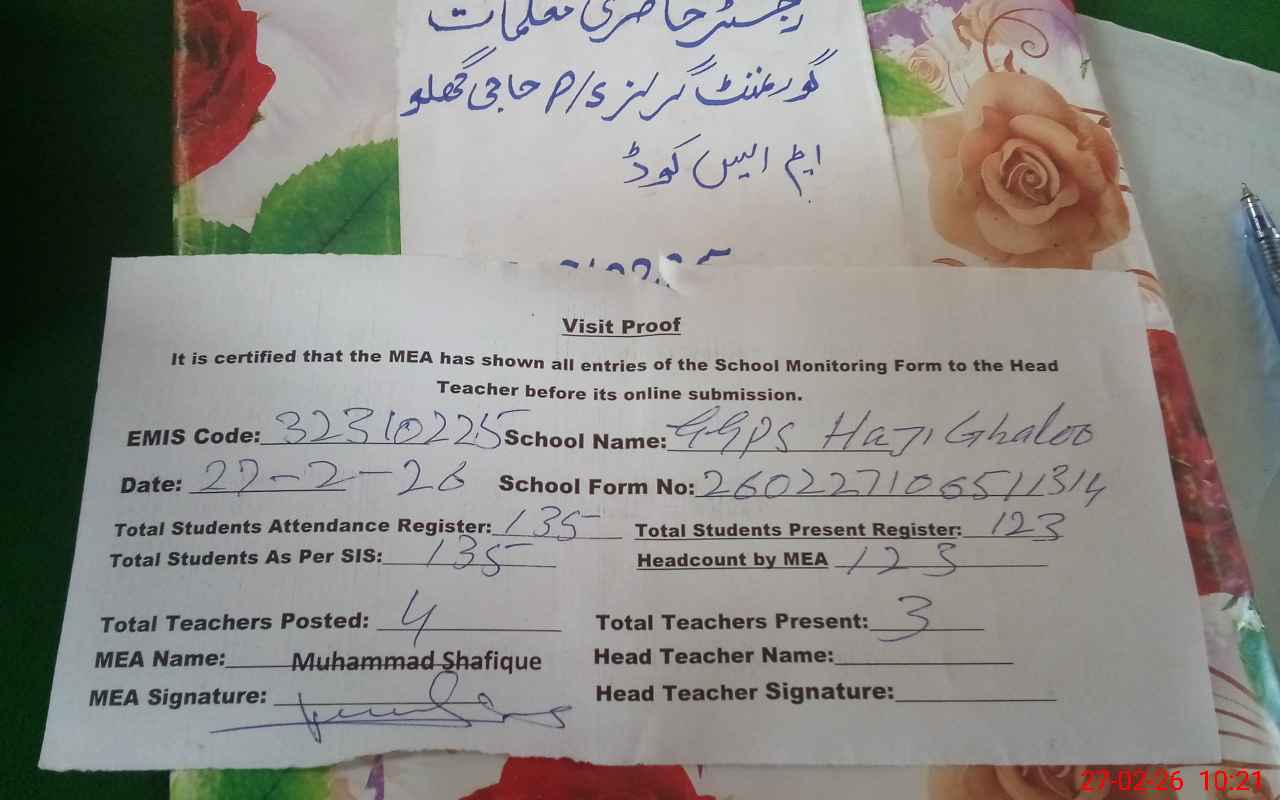 رجسٹر حاضری معلمات
گورنمنٹ گرلز P/S حاجی گھلو
ایم ایس کوڈ
Visit Proof
It is certified that the MEA has shown all entries of the School Monitoring Form to the Head
Teacher before its online submission.
EMIS Code: 32310225 School Name: GGPS Haji Ghaloo
Date: 27-2-26 School Form No: 260227106511314
Total Students Attendance Register: 135 Total Students Present Register: 123
Total Students As Per SIS: 135 Headcount by MEA 123
Total Teachers Posted: 4 Total Teachers Present: 3
MEA Name: Muhammad Shafique Head Teacher Name:
MEA Signature: Head Teacher Signature:
27-02-26 10:21